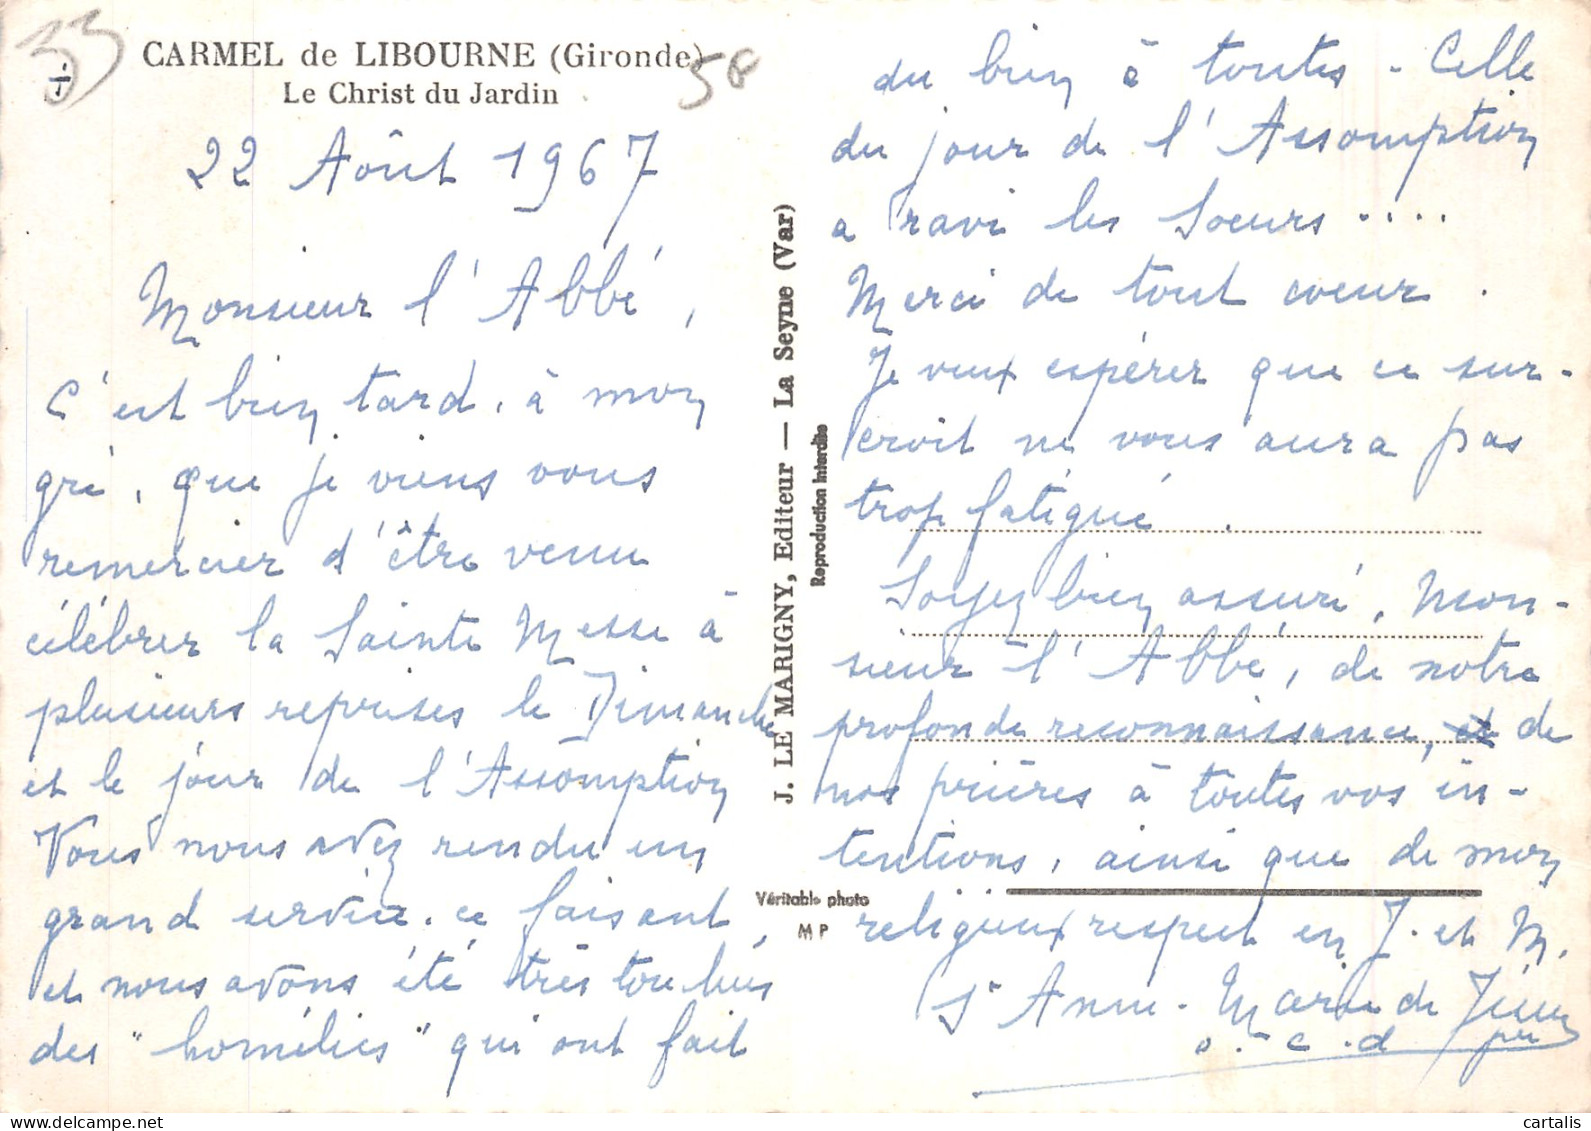 33
CARMEL de LIBOURNE (Gironde)
Le Christ du Jardin
58
22 Août 1967
Monsieur l'Abbé,
C'est bien tard, à mon
gré, que je viens vous
remercier d'être venu
célébrer la Sainte Messe à
plusieurs reprises le Dimanche
et le jour de l'Assomption
Vous nous avez rendu un
grand service, ce faisant,
et nous avons été très touchées
des "homélies" qui ont fait
J. LE MARIGNY, Editeur — La Seyne (Var)
Reproduction Interdite
Véritable photo
MP
du bien à toutes - Celle
du jour de l'Assomption
a ravi les Soeurs ....
Merci de tout coeur.
Je veux espérer que ce sur-
croit ne vous aura pas
trop fatigué.
Soyez bien assuré, Mon-
sieur l'Abbé, de notre
profonde reconnaissance, et de
nos prières à toutes vos in-
tentions, ainsi que de mon
religieux respect en J. et M.
Sr Anne-Marie de Jésus
o.c.d. pri
cartalis